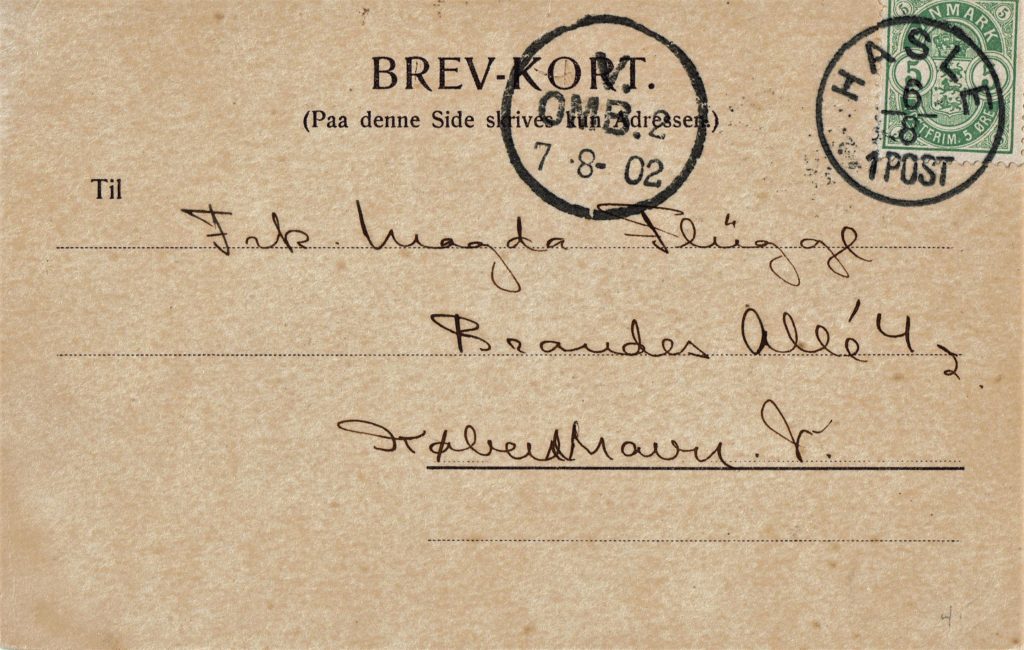 BREV-KORT.
(Paa denne Side skrives kun Adressen.)
V.
OMB. 2
7 8- 02
DANMARK
5 5
POSTFRIM. 5 ØRE
HASLE
6
8
1 POST
Til
Frk. Magda Flügge
Brandes Allé 4 2
København V.